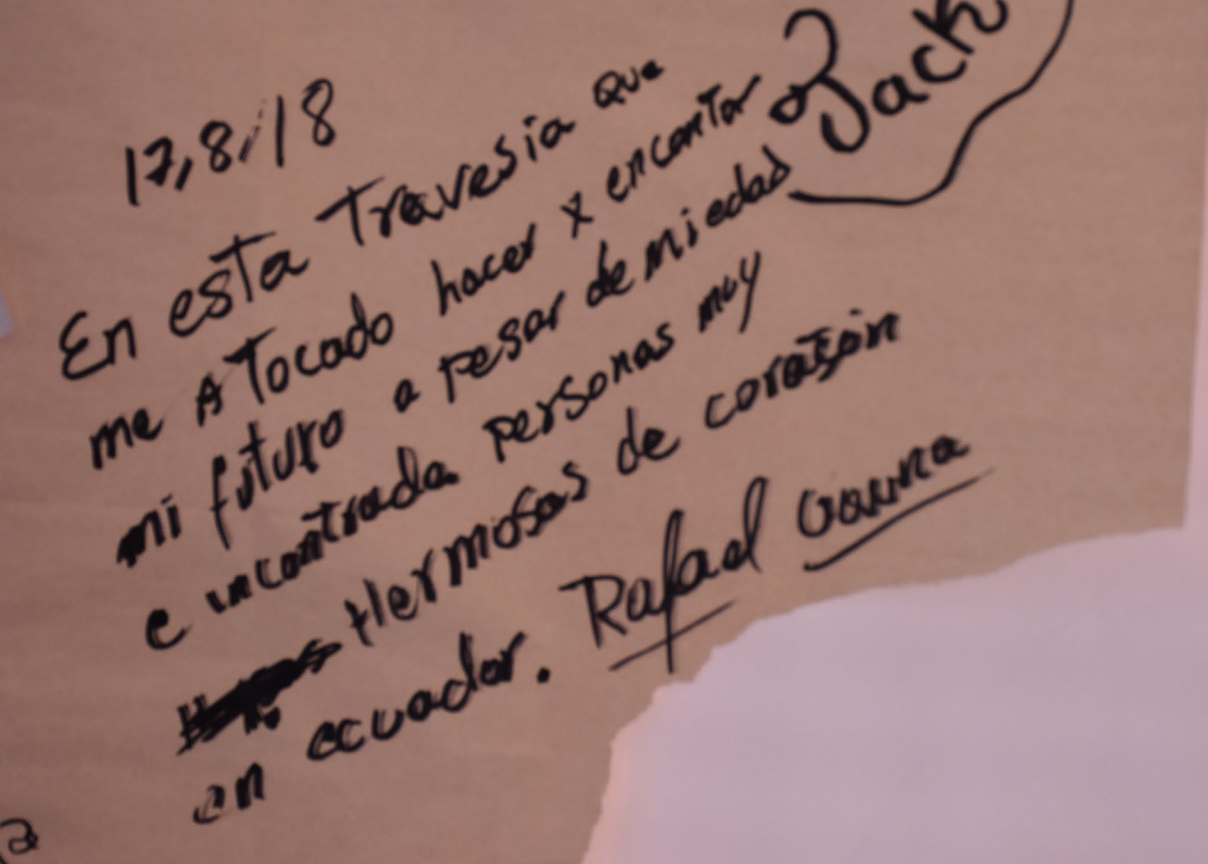 17,8,18
En esta Travesia que
me A Tocado hacer x encontar
mi futuro a pesar de mi edad
e incontrada personas muy
Hermosas de corazón
en ecuador. Rafael
Jack